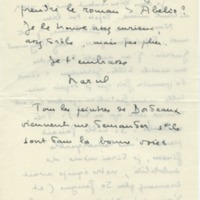 prendre le roman d'Abélio ?
Je le trouve assez curieux,
assez sable, mais pas plus.
Je t'embrasse
Marcel
Tous les peintres de Bordeaux
viennent me demander s'ils
sont dans la bonne voie.